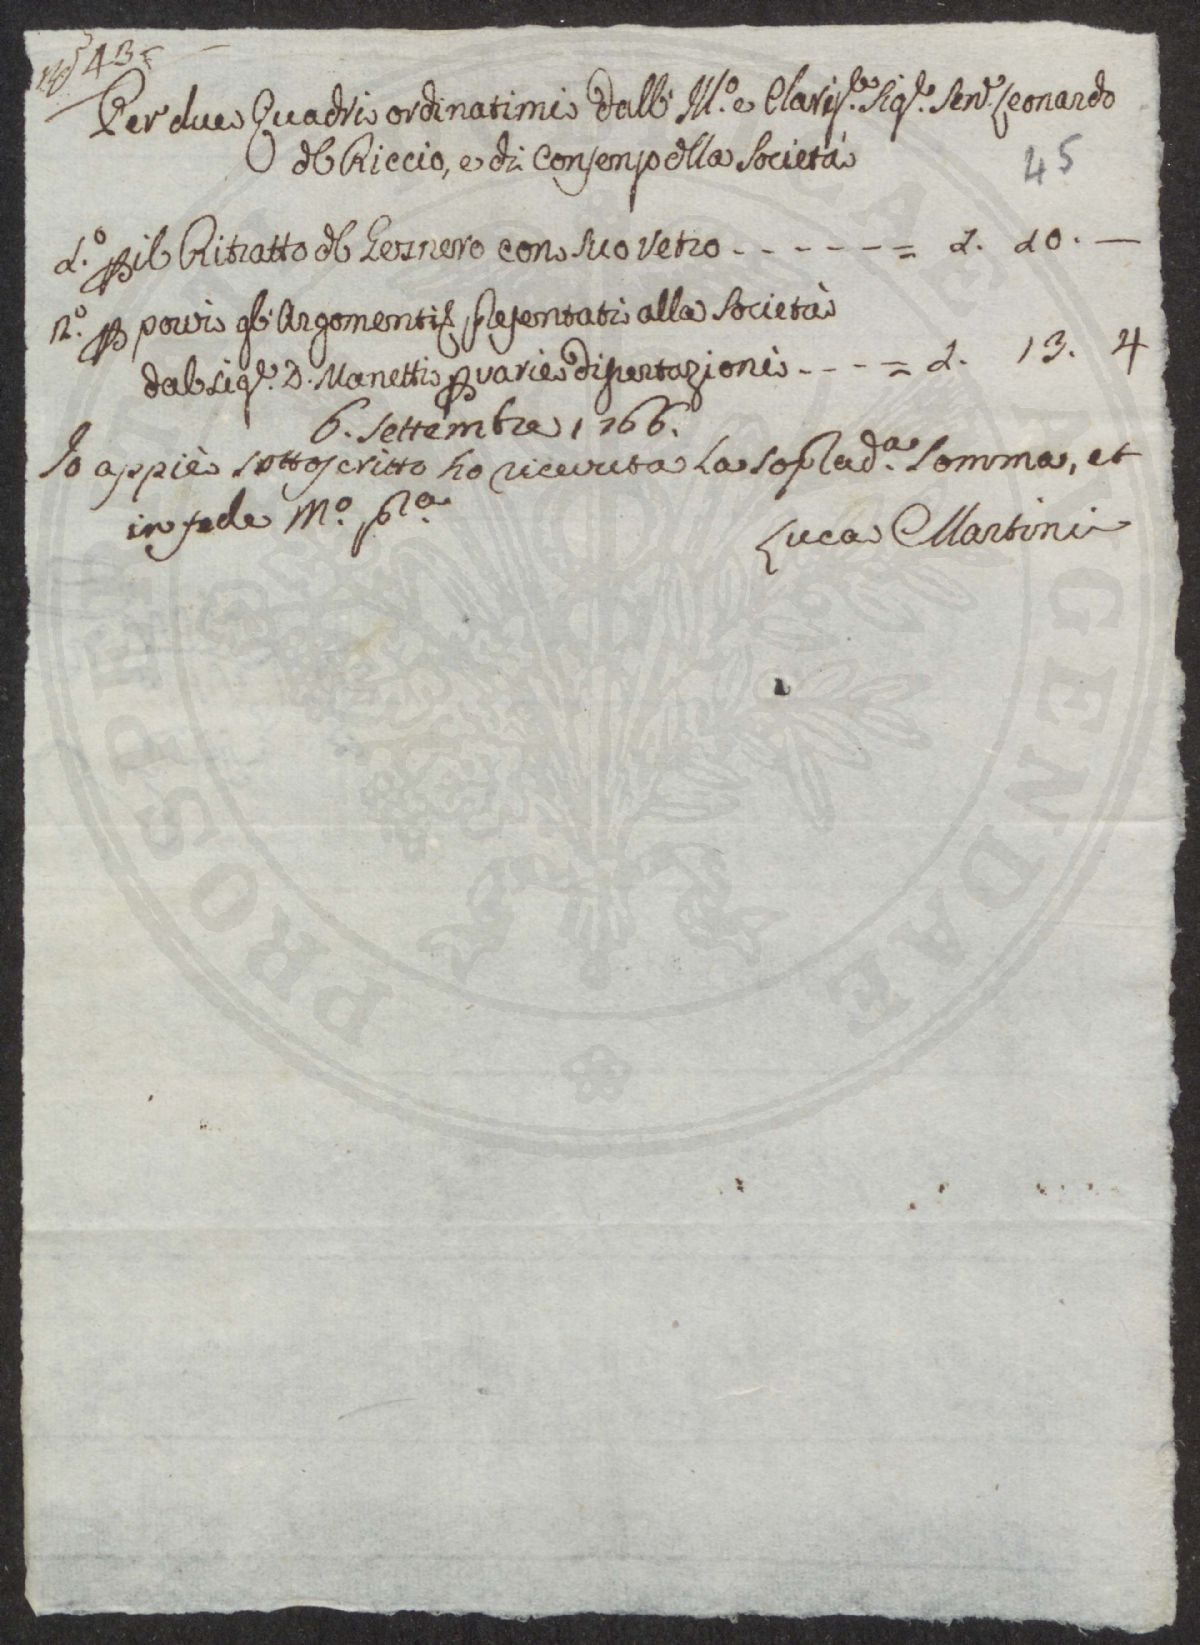 N° 43
Per due Quadri ordinatimi dall' Ill.o e Claris.o Sig.e Sen.e Leonardo
del Riccio, e di Consenso della Società
45
1.° per il Ritratto del Gesnero con suo Vetro - - - - - - = L. 10. —
2.° per porvi gl' Argomenti presentati alla Società
dal Sig.e D. Manetti per varie Dissertazioni - - - - = L. 13. 4
6. Settembre 1766.
Io appiè sottoscritto ho ricevuta la soprad.a Somma, et
in fede M.o p.ia
Luca Martini
PROSPE AE AUGENDAE